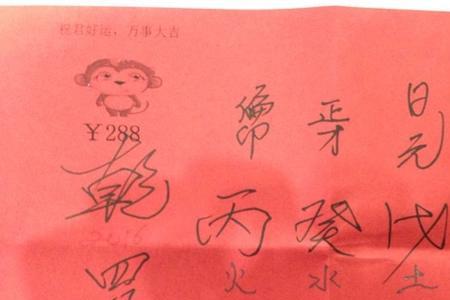 祝君好运，万事大吉
¥288
偏印 正才 日元
乾 丙 癸 戊
火 水 土